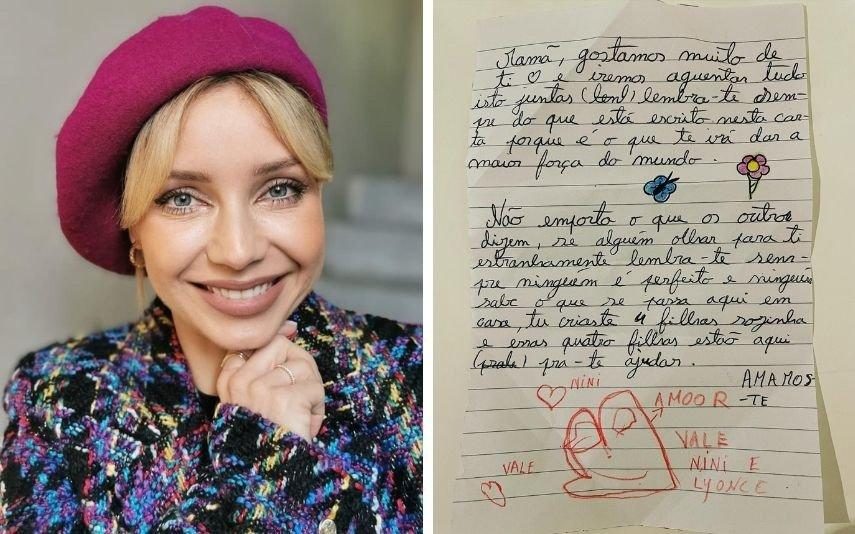 Mamã, gostamos muito de
ti ♡ e iremos aguentar tudo
isto juntas lembra-te sem-
pre do que está escrito nesta car-
ta porque é o que te irá dar a
maior força do mundo.
Não emporta o que os outros
dizem, se alguém olhar para ti
estranhamente lembra-te sem-
pre ninguém é perfeito e ninguém
sabe o que se passa aqui em
casa, tu criaste 4 filhas sozinha
e essas quatro filhas estão aqui
pra-te ajudar.
AMAMOS-
-TE
NINI
AMOOR
VALE
VALE
NINI E
LYONCE